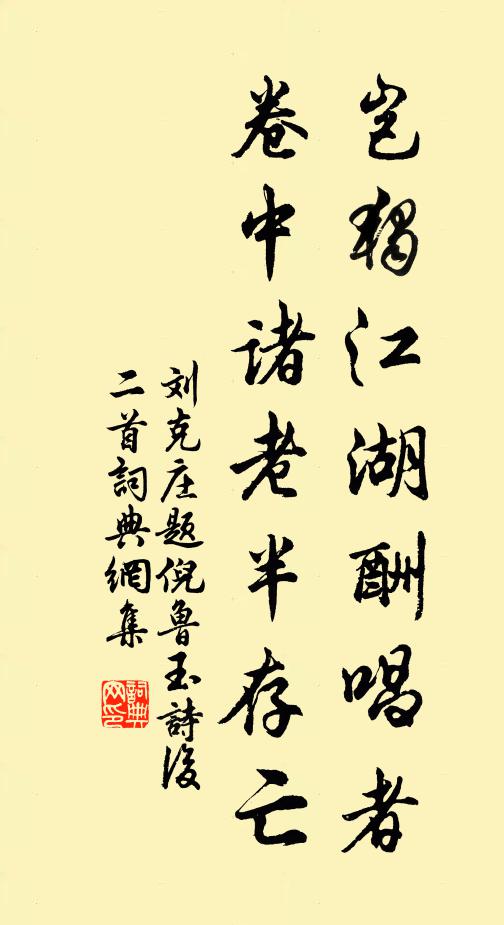 岂独江湖酬唱者
卷中诸老半存亡
刘克庄题倪鲁玉詩後
二首詞典網集
詞典网印